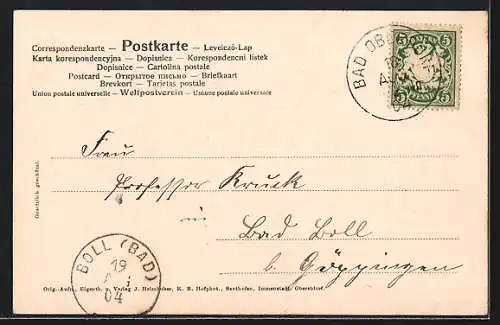 Correspondenzkarte — Postkarte — Levelező-Lap
Karta korespondencyjna — Dopisnica — Korespondenční listek
Dopisnice — Cartolina postale
Postcard — Открытое письмо — Briefkaart
Brevkort — Tarjetas postale
Union postale universelle — Weltpostverein — Unione postale universale
BAD OB
5 5
5 5
Frau
Professor Kruck
in
Bad Boll
b. Göppingen
Gesetzlich geschützt.
BOLL (BAD)
19
04
Orig.-Aufn., Eigenth. u. Verlag J. Heimhuber, K. B. Hofphot., Sonthofen, Immenstadt, Oberstdorf.